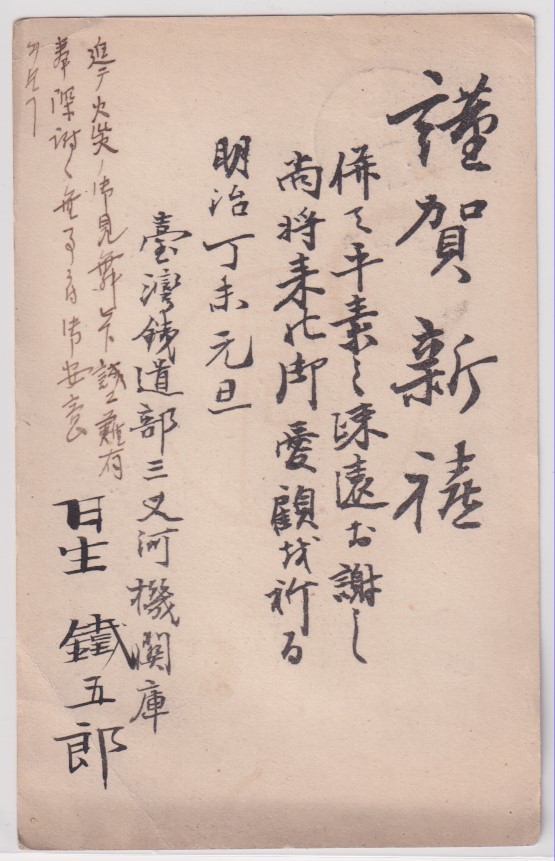 謹賀新禧
併て平素之疎遠お謝し
尚将来の御愛顧を祈る
明治丁未元旦
臺灣鉄道部三叉河機関庫
生 鐵五郎
追テ火災ノ御見舞 誠ニ難有
奉深謝候 御安意